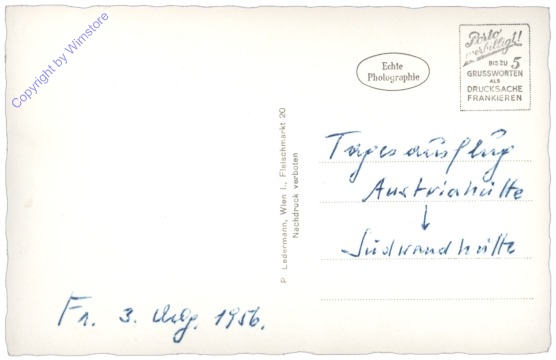 Copyright by Wimstore
Echte
Photographie
Porto
verbilligt!
BIS ZU 5
GRUSSWORTEN
ALS
DRUCKSACHE
FRANKIEREN
P. Ledermann, Wien I., Fleischmarkt 20
Nachdruck verboten
Tagesausflug
Austriahütte
↓
Südwandhütte
Fr. 3. Aug. 1956.